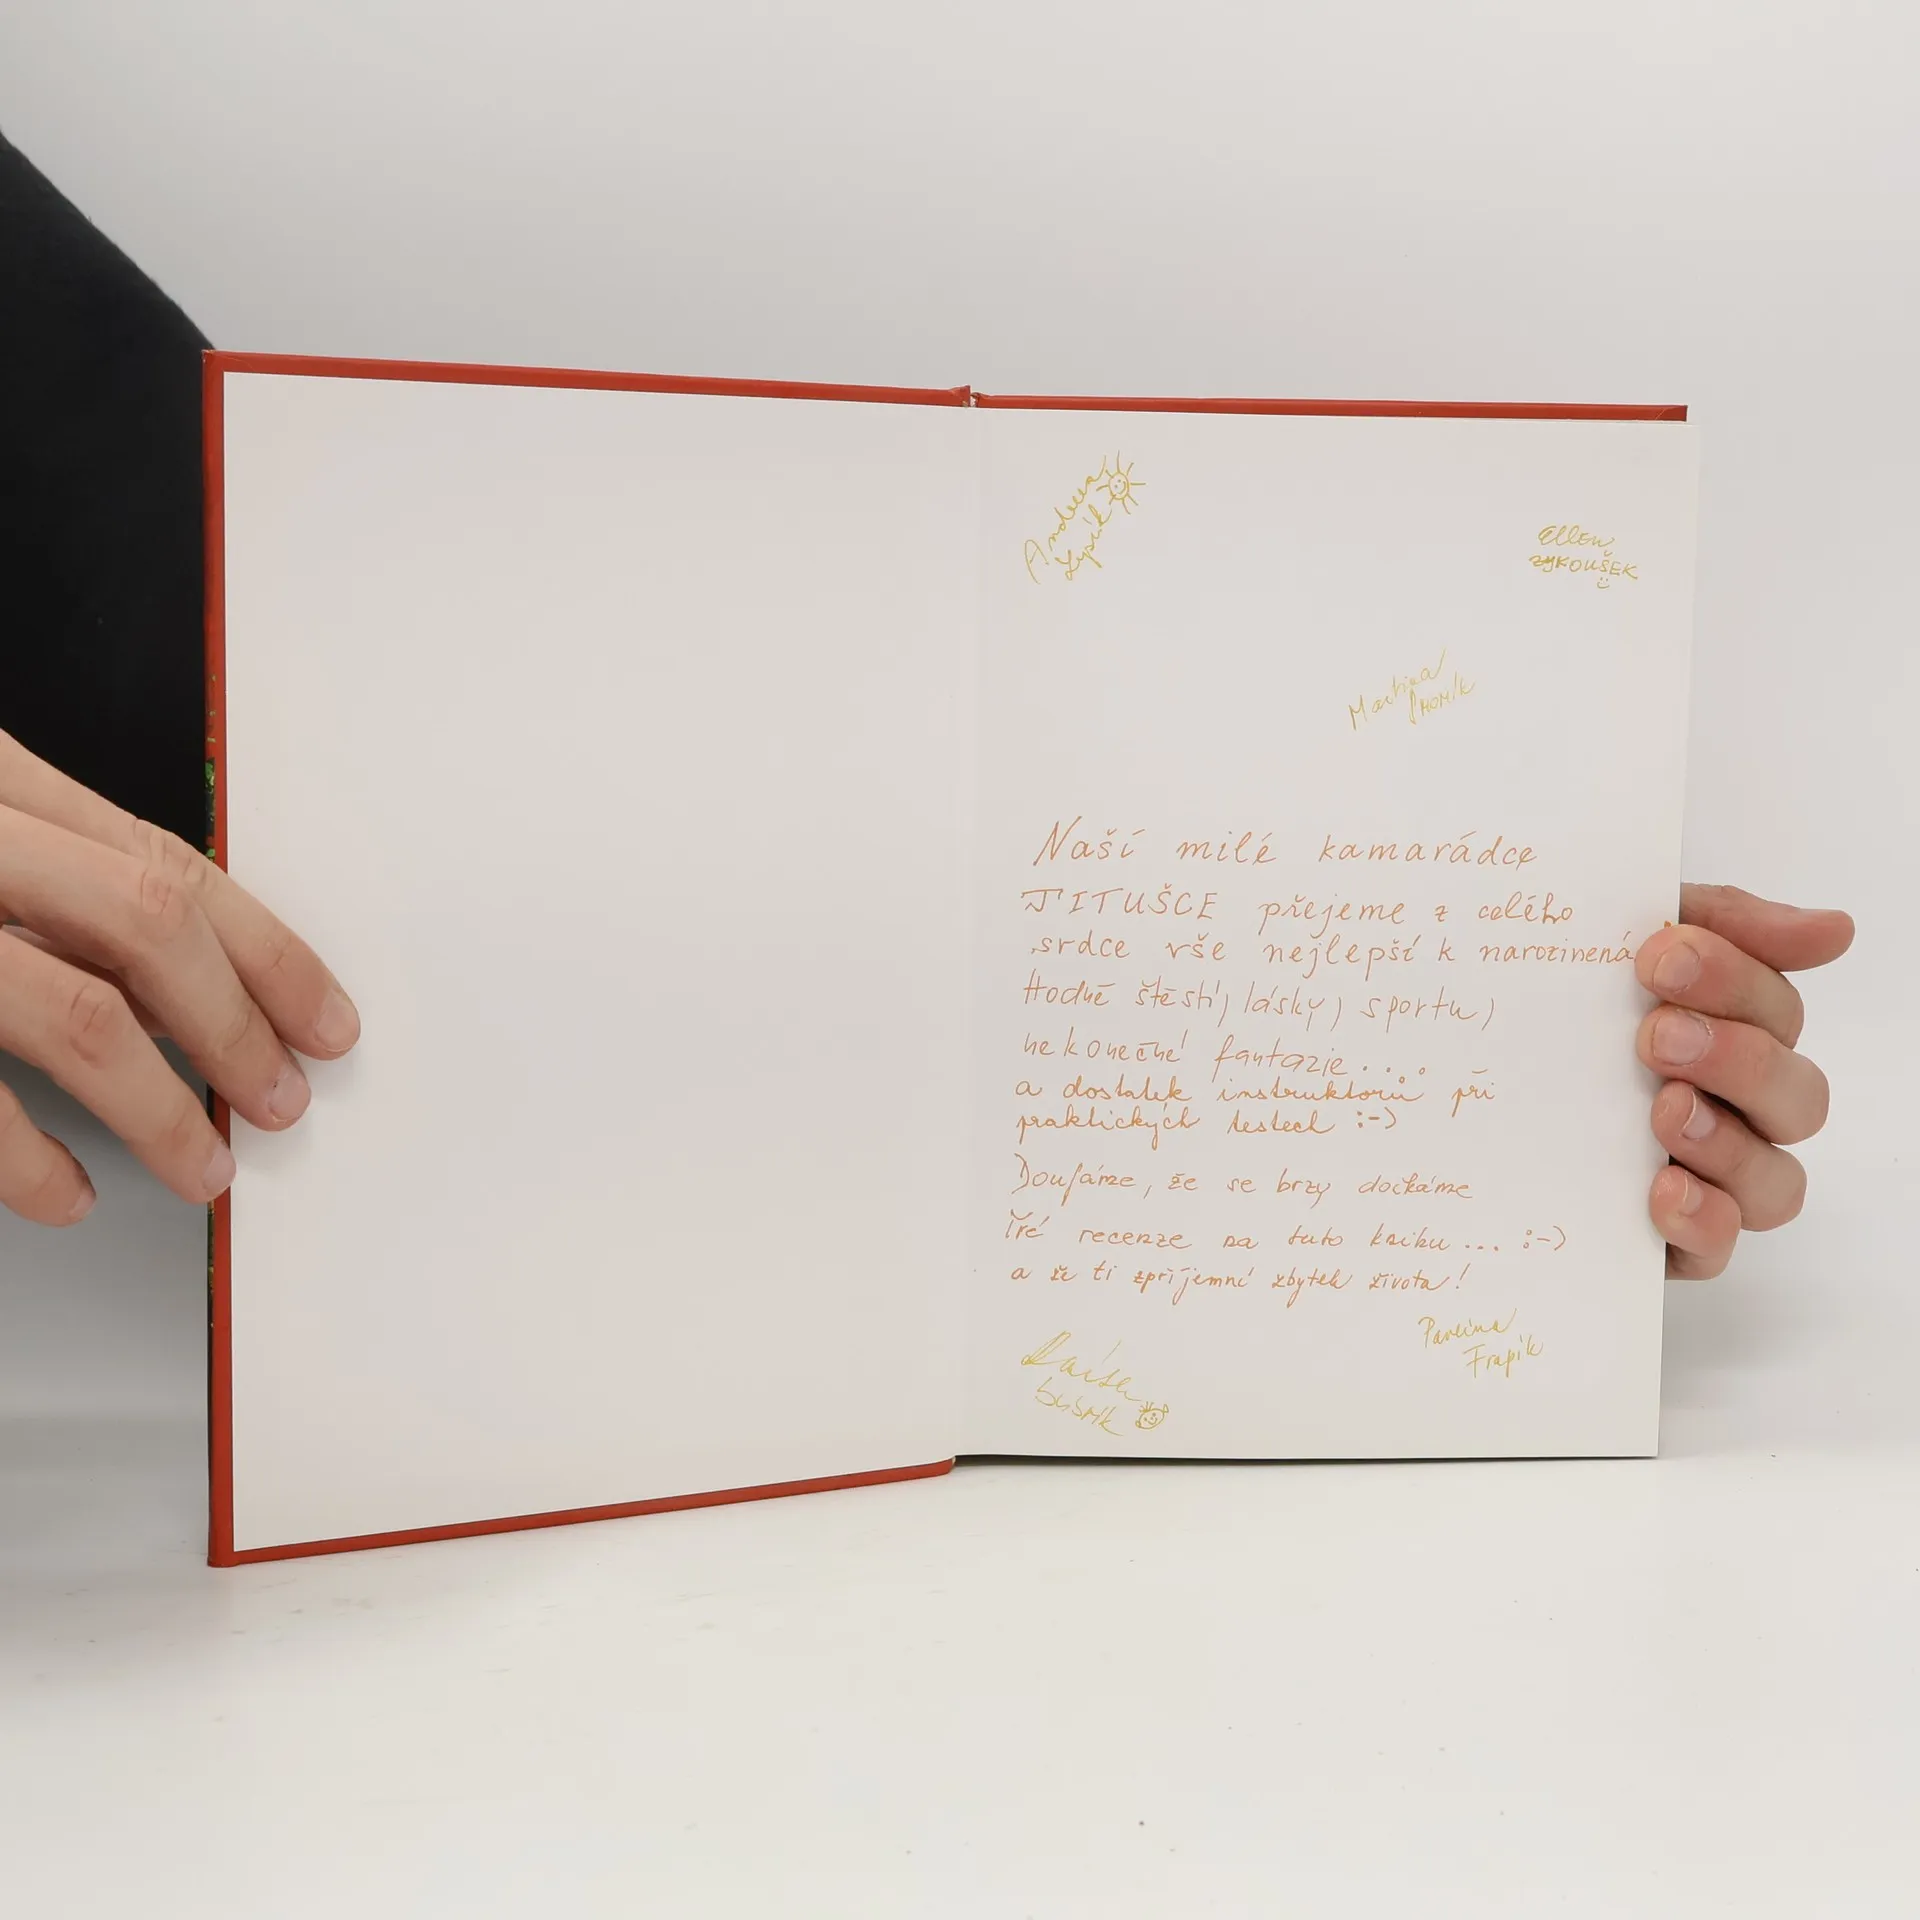 Andrea
Lypík
Ellen
ZYKOUŠEK
Martina
Naší milé kamarádce
TITUŠCE přejeme z celého
srdce vše nejlepší k narozinená
Hodně štěstí, lásky, sportu,
nekonečné fantazie....
a dostatek instruktorů při
praktických testech :-)
Doufáme, že se brzy dočkáme
Tvé recenze na tuto knihu... :-)
a že ti zpříjemní zbytek života!
Pavlína
Frapík